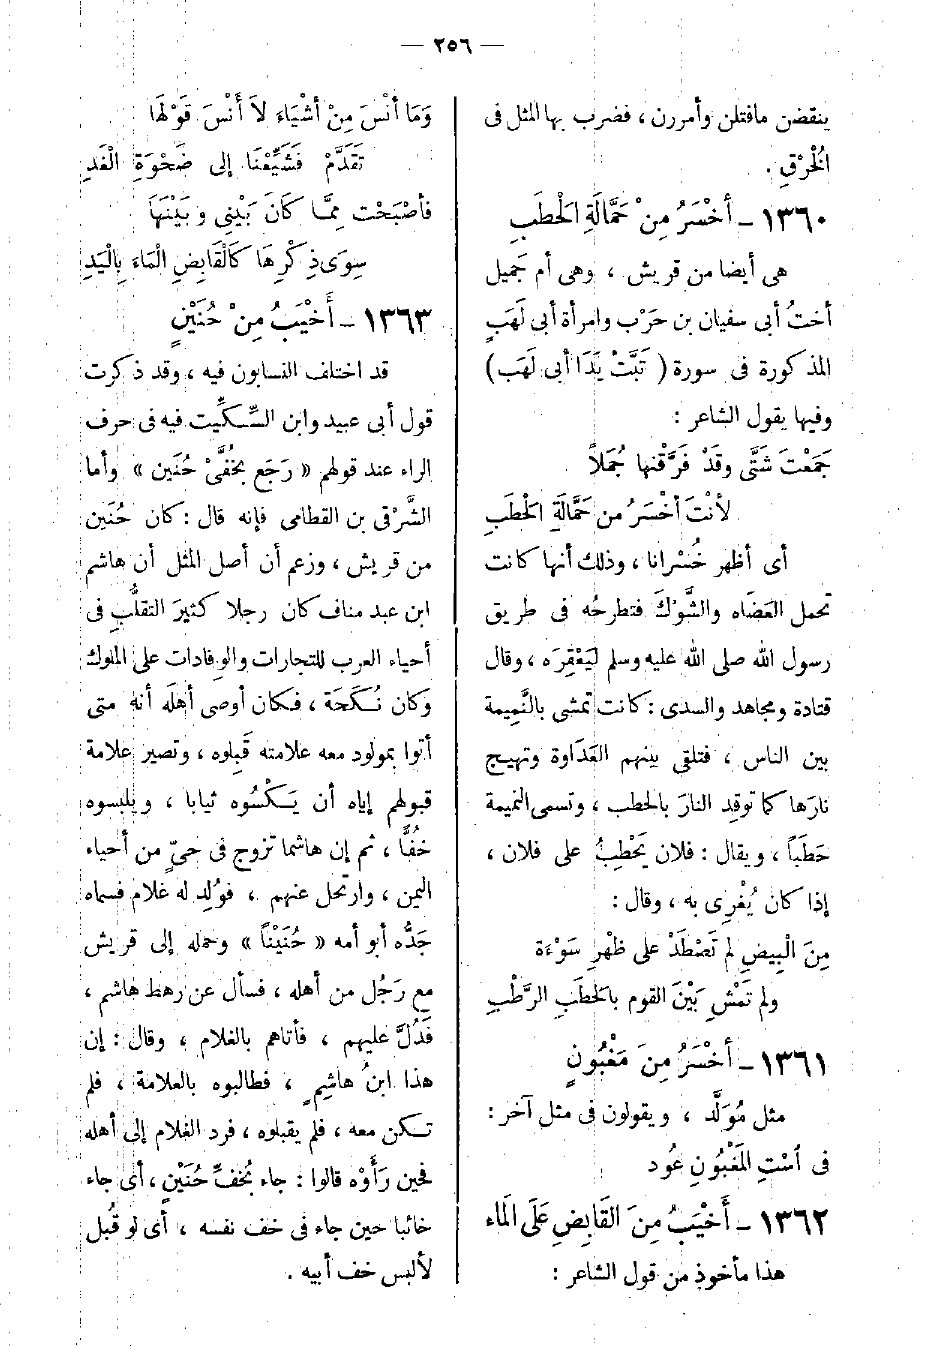 — ٢٥٦ —
ينقضن مافتلن وأمررن ، فضرب بها المثل فى
الْخُرْقِ .
١٣٦٠ – أَخْسَرُ مِنْ حَمَّالَةِ الْحَطَبِ
هى أيضا من قريش ، وهى أم جَمِيل
أختُ أبى سفيان بن حَرْب وامرأة أبى لَهَبٍ
المذكورة فى سورة ( تَبَّتْ يَدَا أبى لهَب )
وفيها يقول الشاعر :
جَمَعْتَ شَتَّى وقَدْ فَرَّقْتَها جُمَلاً
لأنْتَ أخْسَرُ من حَمَّالَةِ الْحطَبِ
أى أظهر خُسْرانا ، وذلك أنها كانت
تحمل العَضَاه والشَّوْكَ فتطرحُه فى طريق
رسول الله صلى الله عليه وسلم ليَعْقِرَه ، وقال
قتادة ومجاهد والسدى : كانت تمشى بالنَّمِيمة
بين الناس ، فتلقى بينهم العَدَاوة وتهيج
نارَها كما توقِد النارَ بالحطب ، وتسمى النميمة
حَطَباً ، ويقال : فلان يَحْطِبُ على فلان ،
إذا كان يُغْرِى به ، وقال :
مِنَ الْبِيضِ لم تَصْطَدْ على ظَهْرِ سَوْءَة
ولم تَمْشِ بَيْنَ القوم بالحَطَبِ الرَّطْبِ
١٣٦١ – أَخْسَرُ مِنَ مَغْبُونٍ
مثل مُوَلَّد ، ويقولون فى مثل آخر :
فى أسْتِ المَغْبُونِ عُود
١٣٦٢ – أَخْيَبُ مِنَ القَابِضِ عَلَى المَاء
هذا مأخوذ من قول الشاعر :
وَمَا أنْسَ مِنْ أشْيَاءَ لاَ أَنْسَ قَوْلَهَا
تَقَدَّمْ فَشَيِّعْنَا إلى ضَحْوَةِ الْغَدِ
فأصْبَحْت مِمَّا كَانَ بَيْنِى وبَيْنَهَا
سِوَى ذِكْرِهَا كَالْقَابِضِ الْمَاءَ بِالْيَدِ
١٣٦٣ – أَخْيَبُ مِنْ حُنَيْنٍ
قد اختلف النسابون فيه ، وقد ذكرت
قول أبى عبيد وابن السِّكِّيت فيه فى حرف
الراء عند قولهم « رَجَع بخُفَّىْ حُنَين » وأما
الشَّرْقى بن القطامى فإنه قال : كان حُنَين
من قريش ، وزعم أن أصل المثل أن هاشم
ابن عبد مناف كان رجلا كثيرَ التقلُّب فى
أحياء العرب للتجارات والوِفادات على الملوك
وكان نُكَحَة ، فكان أوصى أهلَه أنه متى
أتوا بمولود معه علامته قَبِلوه ، وتصير علامة
قبولهم إياه أن يَكْسُوه ثيابا ، ويلبسوه
خُفًّا ، ثم إن هاشما تزوج فى حىٍّ من أحياء
اليمن ، وارتحل عنهم ، فوُلِد له غلام فسماه
جَدُّه أبو أمه « حُنَيْناً » وحمله إلى قريش
مع رَجُل من أهله ، فسأل عن رهط هاشم ،
فَدُلَّ عليهم ، فأتاهم بالغلام ، وقال : إن
هذا ابنُ هاشِمٍ ، فطالبوه بالعلامة ، فلم
تكن معه ، فلم يقبلوه ، فرد الغلام إلى أهله
فحين رَأَوْه قالوا : جاء بُخفِّ حُنَيْنٍ ، أى جاء
خائبا حين جاء فى خف نفسه ، أى لو قُبل
لألبس خف أبيه .